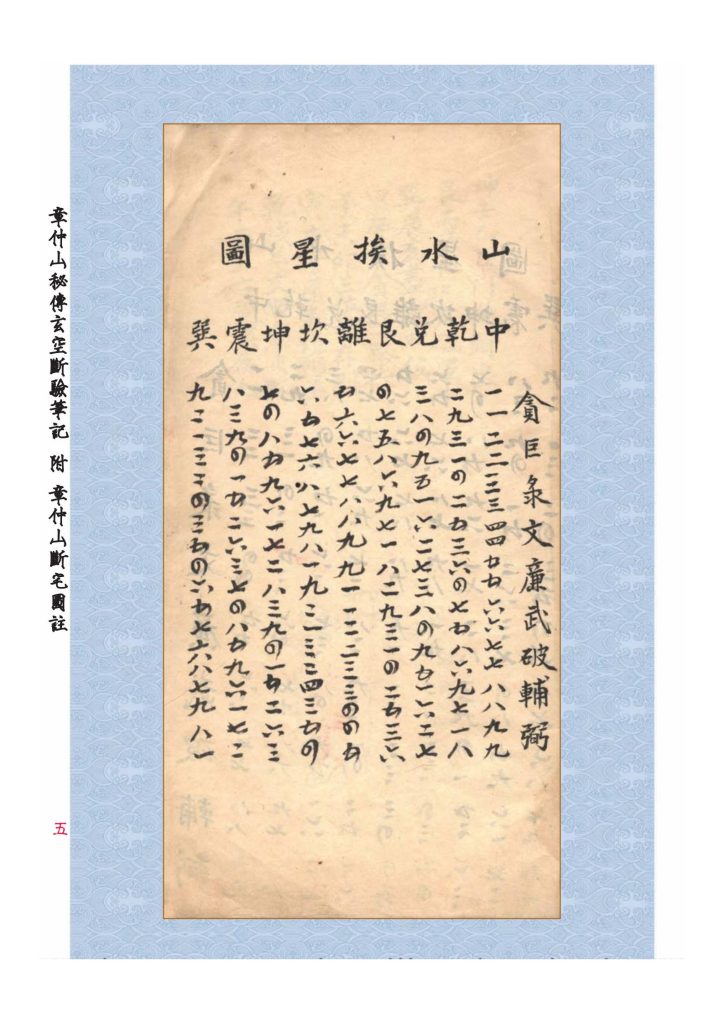 山水挨星圖
貪巨彔文廉武破輔弼
中一一二二三三四四五五六六七七八八九九
乾二九三一四二五三六四七五八六九七一八
兌三八四九五一六二七三八四九五一六二七
艮四七五八六九七一八二九三一四二五三六
離五六六七七八八九九一一二二三三四四五
坎六五七六八七九八一九二一三二四三五四
坤七四八五九六一七二八三九四一五二六三
震八三九四一五二六三七四八五九六一七二
巽九二一三二四三五四六五七六八七九八一
章仲山秘傳玄空斷驗筆記 附 章仲山斷宅圖註
五